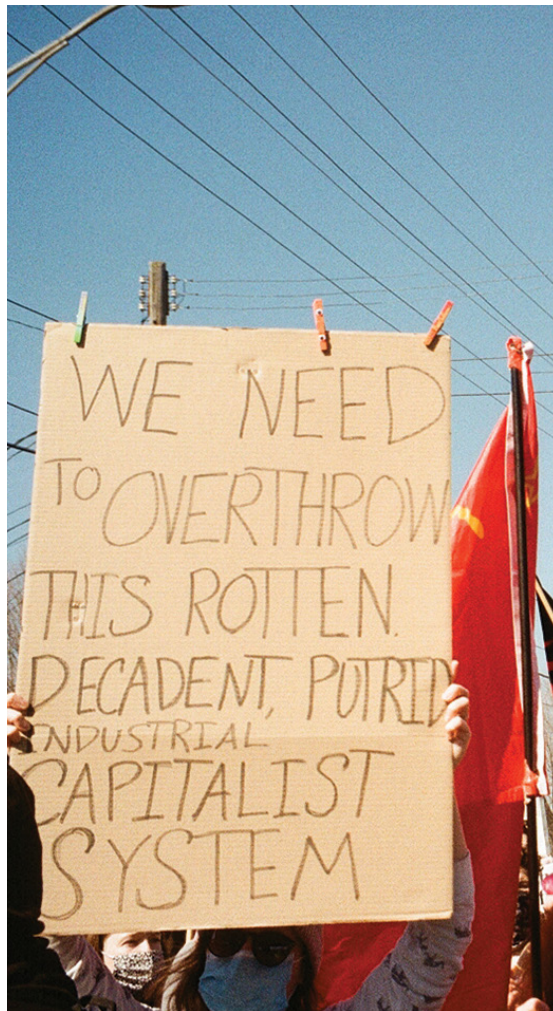 WE NEED
TO OVERTHROW
THIS ROTTEN.
DECADENT, PUTRID
INDUSTRIAL
CAPITALIST
SYSTEM